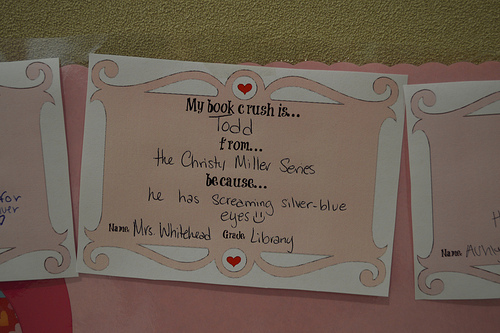 My book crush is...
Todd
from...
the Christy Miller Series
because...
he has screaming silver-blue
eyes
Name Mrs. Whitehead Grade Library
for
Name